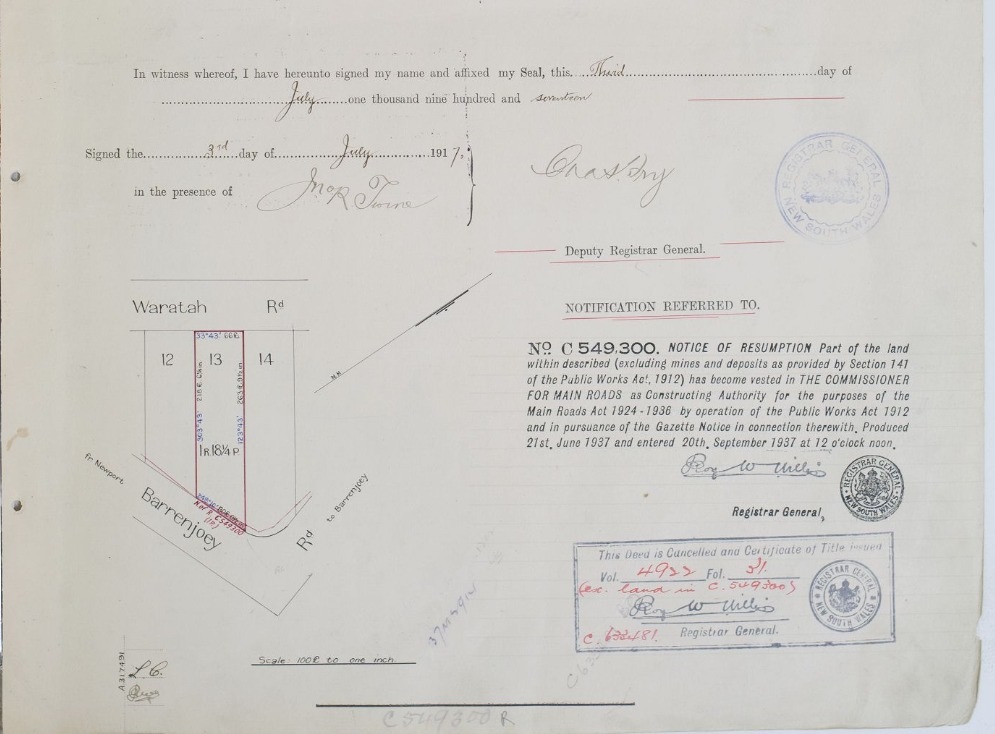 In witness whereof, I have hereunto signed my name and affixed my Seal, this Third day of
July one thousand nine hundred and seventeen
Signed the 3rd day of July 1917,
in the presence of
Deputy Registrar General.
REGISTRAR GENERAL NEW SOUTH WALES
Waratah Rd
12 13 14
1R.18¼P
fr Newport
Barrenjoey Rd
to Barrenjoey
Scale 100ft to one inch
A317491
L.C.
NOTIFICATION REFERRED TO.
No C 549,300. NOTICE OF RESUMPTION Part of the land
within described (excluding mines and deposits as provided by Section 141
of the Public Works Act, 1912) has become vested in THE COMMISSIONER
FOR MAIN ROADS as Constructing Authority for the purposes of the
Main Roads Act 1924-1936 by operation of the Public Works Act 1912
and in pursuance of the Gazette Notice in connection therewith. Produced
21st. June 1937 and entered 20th. September 1937 at 12 o'clock noon.
Roy W Willis
Registrar General,
REGISTRAR GENERAL NEW SOUTH WALES
This Deed is Cancelled and Certificate of Title issued
Vol. 4922 Fol. 31
(ex. land in C.549300)
Roy W Willis
Registrar General.
REGISTRAR GENERAL NEW SOUTH WALES
C549300 R